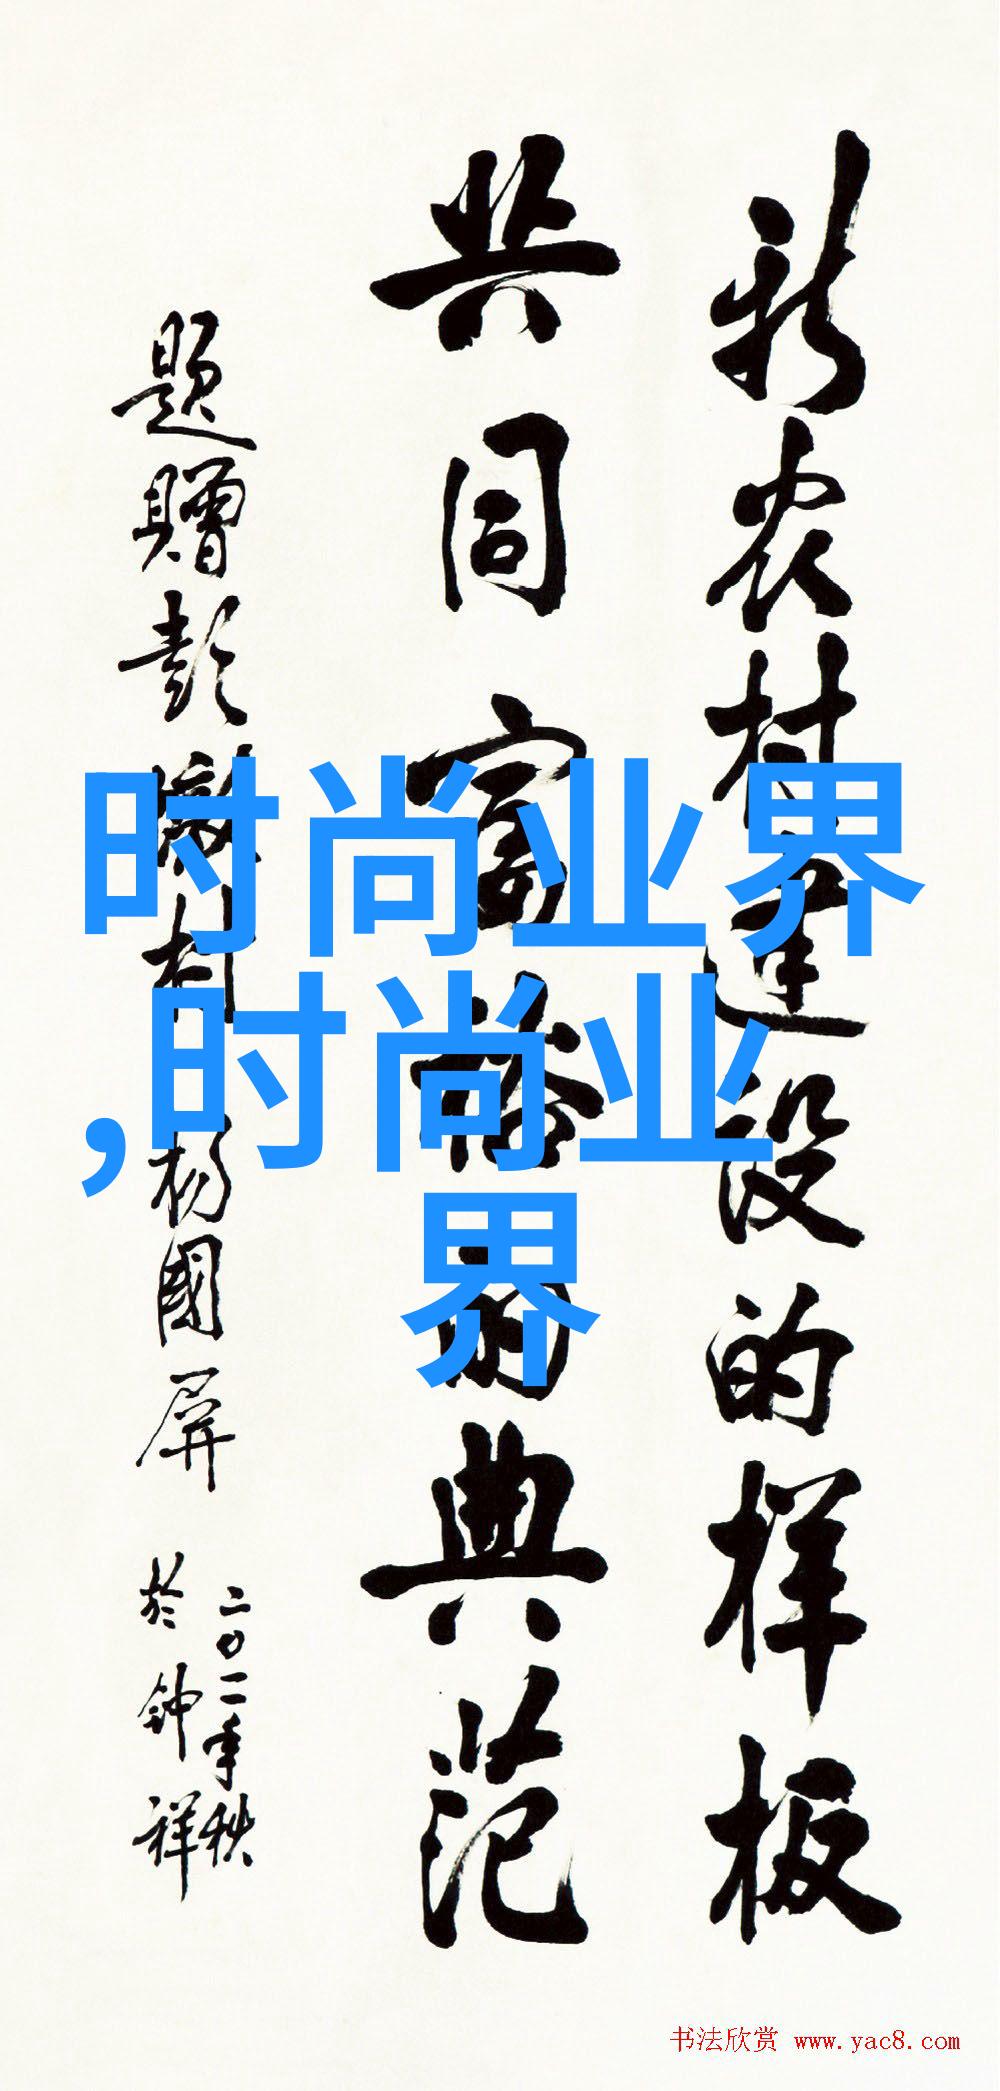 新农村建设的样板
共同富裕的典范
题赠彭墩村 杨国屏
二〇一一年秋
於钟祥
时尚业界
,时尚业
界
书法欣赏 www.yac8.com